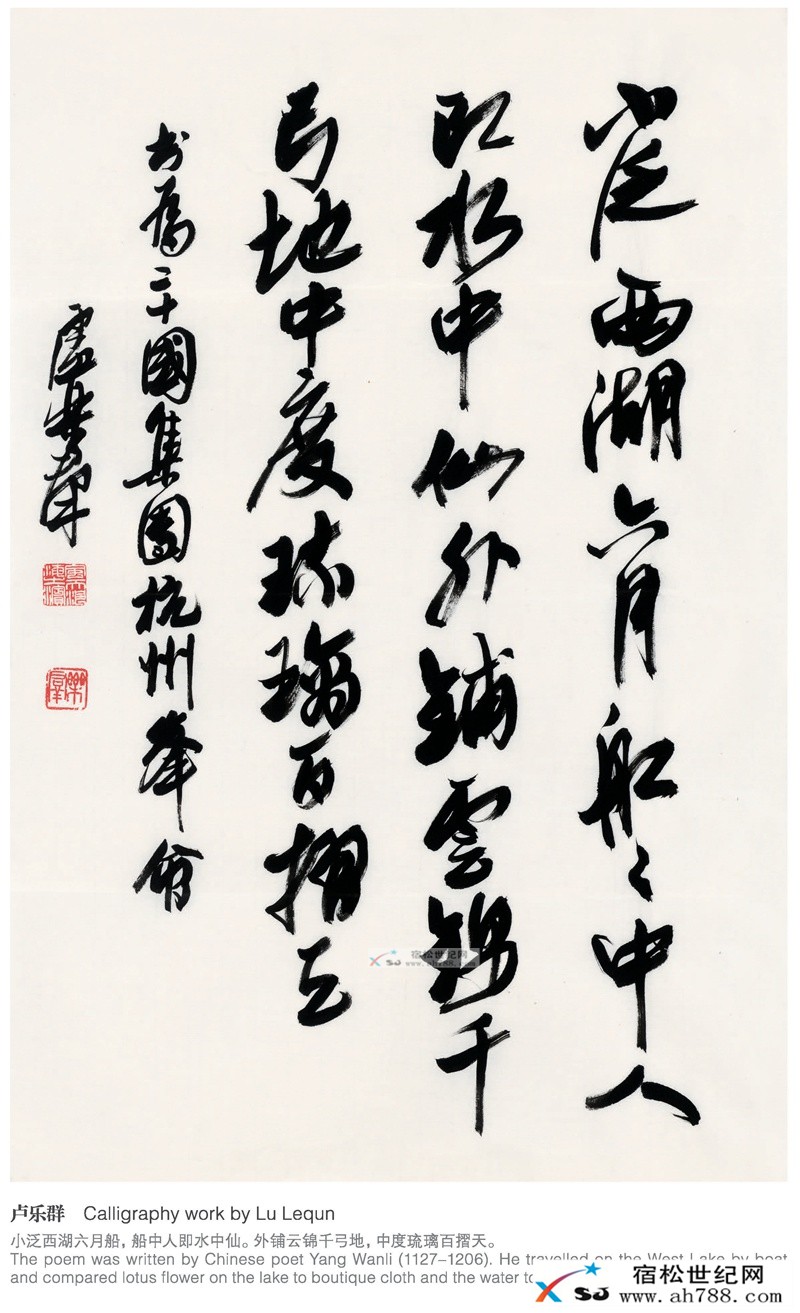 小泛西湖六月船〻中人
即水中仙外铺雲錦千
弓地中度琉璃百摺天
书為二十國集團杭州峯會
盧樂群
宿松世纪网
www.ah788.com
卢乐群 Calligraphy work by Lu Lequn
小泛西湖六月船，船中人即水中仙。外铺云锦千弓地，中度琉璃百摺天。
The poem was written by Chinese poet Yang Wanli (1127–1206). He travelled on the West Lake by boat
and compared lotus flower on the lake to boutique cloth and the water
XSJ 宿松世纪网
www.ah788.com